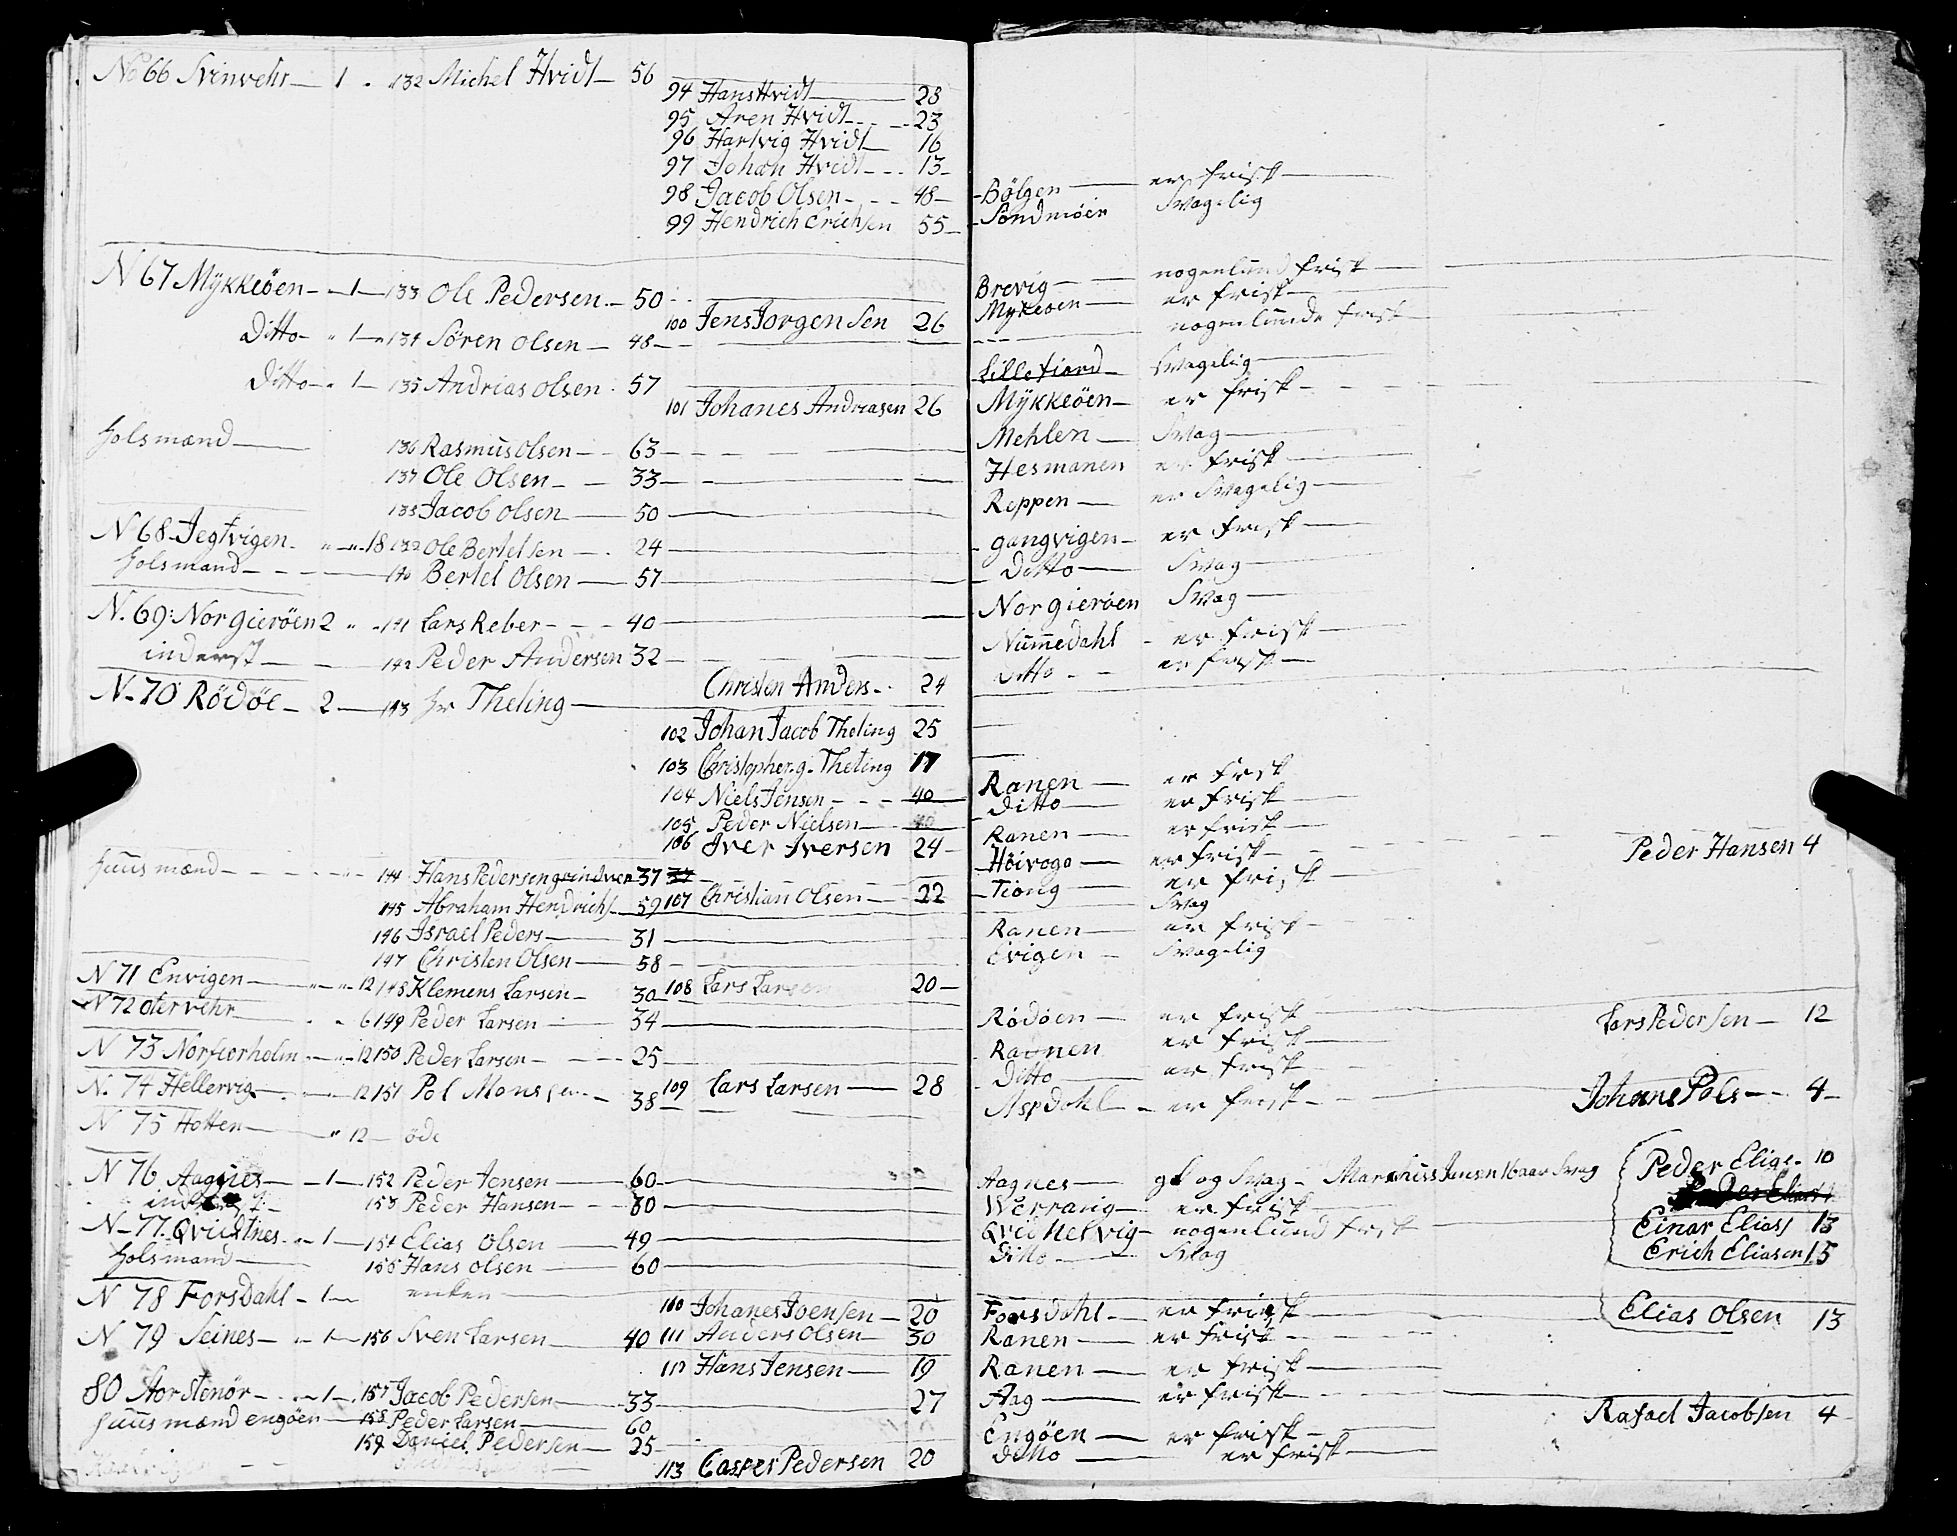 No 66 Svinvehr — 1 - 132 Michel Hvidt — 56
94 Hans Hvidt — 28
95 Aren Hvidt - - - 23
96 Hartvig Hvidt — 16
97 Johan Hvidt - - - 13
98 Jacob Olsen - - - 48 — Bölgen — er frisk
99 Hendrich Erichsen 55 — Söndmöer Svagelig
N 67 Mÿkkeöen - 1 — 133 Ole Pedersen - 50 Brevig — nogenlund frisk
100 Jens Jorgensen 26 Mykeöen — er frisk
Ditto - 1 - 134 Sören Olsen — 48 nogenlunde frisk
Ditto - 1 — 135 Andrias Olsen 57 Lillefiord — Svagelig
101 Johanes Andreasen 26 Mÿkkeöen — er frisk
holsmænd — 136 Rasmus Olsen — 63 Mehlen — Svag
137 Ole Olsen — 33 Hesmanen er frisk
138 Jacob Olsen — 50 Reppen — er Svagelig
N 68 Jegtvigen - 18 139 Ole Bertelsen — 24 gangvigen — er frisk
holsmand — 140 Bertel Olsen — 57 Ditto — Svag
N. 69: Norgieröen 2 - 141 Lars Reber - - - 40 Norgieröen Svag
inderst — 142 Peder Andersen 32 Nummedahl - er frisk
Christen Anders - 24 ditto - - er frisk
N - 70 Rödöe — 2 — 143 hr Theling
102 Johan Jacob Theling 25
103 Christopher. g. Theling 17
104 Niels Jensen - - - 40 Ranen — er frisk
105 Peder Nielsen — 40 Ditto — er frisk
106 Iver Iversen 24 Ranen — er frisk
huusmænd - - - 144 Hans Pedersen 37 Höivogo — er frisk — Peder Hansen 4
145 Abraham Hendrichs 59 107 Christian Olsen — 22 Tiong — er frisk
146 Israel Peders — 31 Svag
147 Christen Olsen — 58 Ranen — er frisk
N 71 Envigen — 12 148 Klemens Larsen — 30 108 Lars Larsen 20 — Evigen — Svagelig
N 72 Otervehr — 6 149 Peder Larsen — 34 Rödöen — er frisk — Lars Pedersen — 12
N 73 Norfierholm - 12 150 Peder Larsen — 25 Raonen er frisk
N. 74 Hellervig — 12 151 Pol Monssen - 38 109 Lars Larsen — 28 Ditto — er frisk
Aspdahl - er frisk — Johans Pols - - 4
N 75 Hotten — 12 — öde
N 76 Aagnes — 1 — 152 Peder Jensen — 60 Aagnes — gl og Svag - Marchus Jensen 16 aar Svag Peder Elias - 10
153 Peder Hansen — 30 Werrang — er frisk
N - 77. Qvidtnes - 1 — 154 Elias Olsen — 49 Qvidhelvig — nogenlund frisk Einar Elias 13
holsmand — 155 Hans Olsen — 60 Ditto — Svag Erich Eliasen 15
N 78 Forsdahl - 1 — enken
110 Johanes Joensen — 20 Forsdahl — er frisk — Elias Olsen 13
N 79 Seines — 1 — 156 Sven Larsen 40 111 Anders Olsen — 30 Ranen — er frisk
112 Hans Jensen — 19 Ranen — er frisk
80 Storstenör - 1 — 157 Jacob Pedersen — 33 27 Aag — er frisk
huusmænd engöen — 158 Peder Larsen — 60 Engöen — er frisk — Rafael Jacobsen 4
159 Daniel Pedersen — 25 ditto — er frisk
113 Casper Pedersen 20